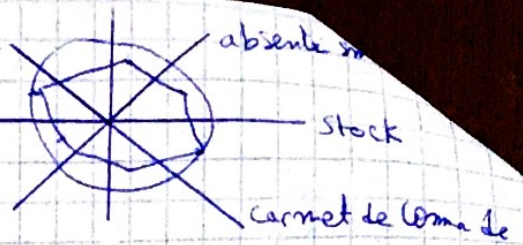 absente
stock
carnet de Comma de